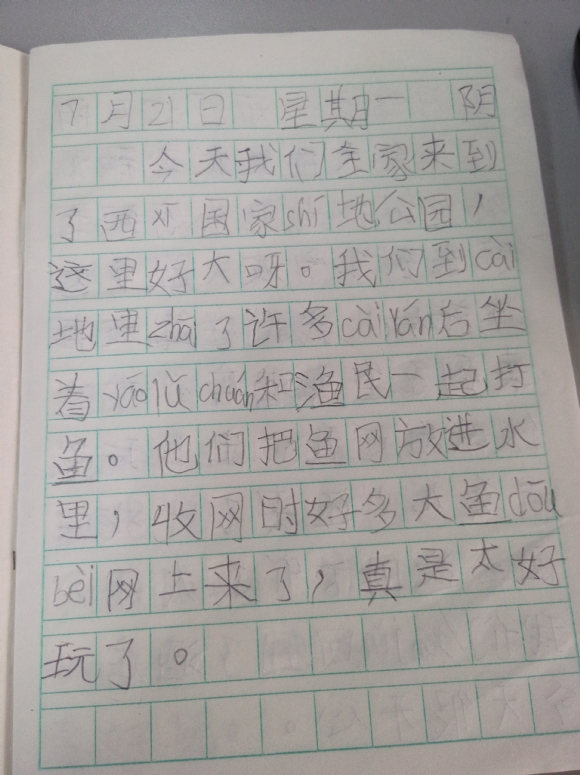 7月21日 星期一 阴
今天我们全家来到
了西对国家shī地公园,
这里好大呀。我们到cài
地里zhāi了许多cài rán后坐
着yáo lǔ chuán和渔民一起打
鱼。他们把鱼网放进水
里,收网时好多大鱼dōu
bèi网上来了,真是太好
玩了。